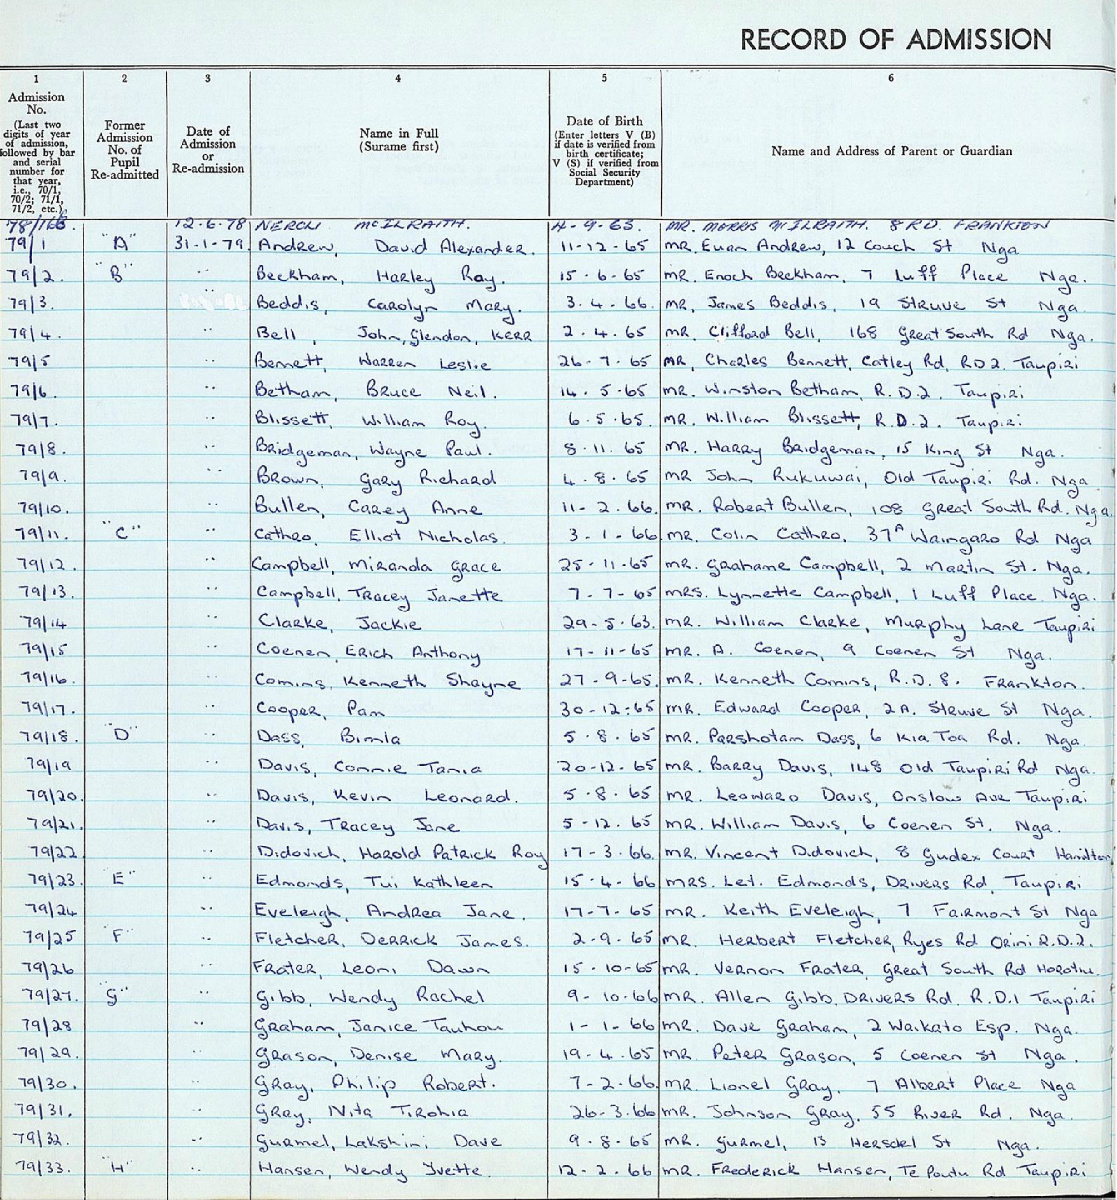 RECORD OF ADMISSION
1 2 3 4 5 6
Admission No. (Last two digits of year of admission, followed by bar and serial number for that year, i.e., 70/1, 70/2; 71/1, 71/2, etc.)
Former Admission No. of Pupil Re-admitted
Date of Admission or Re-admission
Name in Full (Surame first)
Date of Birth (Enter letters V (B) if date is verified from birth certificate; V (S) if verified from Social Security Department)
Name and Address of Parent or Guardian
78/166 12-6-78 NEROLI McILRAITH 4-9-63 MR. MORRIS McILRAITH. 8 RD FRANKTON
79/1 "A" 31-1-79 Andrew, David Alexander. 11-12-65 MR. Euan Andrew, 12 Couch St Nga
79/2 "B" " Beckham, Harley Ray. 15-6-65 MR. Enoch Beckham, 7 Luff Place Nga.
79/3. " Beddis, Carolyn Mary. 3.4.66. MR. James Beddis, 19 Struve St Nga.
79/4. " Bell, John, Glendon, KERR 2-4.65 MR. Clifford Bell, 168 Great South Rd Nga.
79/5 " Bennett, Warren Leslie 26-7.65 MR. Charles Bennett, Catley Rd, RD2. Taupiri
79/6 " Betham, Bruce Neil. 14.5-65 MR. Winston Betham, R.D.2. Taupiri
79/7 " Blissett, William Roy. 6-5.65. MR. William Blissett, R.D.2. Taupiri
79/8 " Bridgeman, Wayne Paul. 8-11.65 MR. Harry Bridgeman, 15 King St Nga.
79/9 " Brown, Gary Richard 4.8.65 MR John Rukuwai, Old Taupiri Rd. Nga
79/10. " Bullen, Carey Anne 11-2.66. MR. Robert Bullen, 108 Great South Rd. Nga.
79/11 "C" " Cathro, Elliot Nicholas. 3-1-66 MR. Colin Cathro, 37A Waingaro Rd Nga
79/12 " Campbell, Miranda Grace 25-11-65 MR. Grahame Campbell, 2 Martin St. Nga.
79/13 " Campbell, Tracey Janette 7-7-65 MRS. Lynnette Campbell, 1 Luff Place Nga.
79/14 " Clarke, Jackie 29-5-63. MR. William Clarke, Murphy Lane Taupiri
79/15 " Coenen, Erich Anthony 17-11-65 MR. A. Coenen, 9 Coenen St Nga.
79/16. " Comins, Kenneth Shayne 27-9-65. MR. Kenneth Comins, R.D.8. Frankton.
79/17. " Cooper, Pam 30-12-65 MR. Edward Cooper, 2A. Struve St Nga.
79/18. "D" " Dass, Bimla 5.8.65 MR. Parshotam Dass, 6 Kia Toa Rd. Nga
79/19 " Davis, Connie Tania 20-12.65 MR. Barry Davis, 148 Old Taupiri Rd Nga.
79/20. " Davis, Kevin Leonard. 5-8.65 MR. Leonard Davis, Onslow Ave Taupiri
79/21. " Davis, Tracey Jane 5-12.65 MR. William Davis, 6 Coenen St. Nga.
79/22 " Didovich, Harold Patrick Roy 17-3.66. MR. Vincent Didovich, 8 Gudex Court Hamilton
79/23 "E" " Edmonds, Tui Kathleen 15-4-66 MRS. Let. Edmonds, Drivers Rd, Taupiri
79/24 " Eveleigh, Andrea Jane. 17-7.65 MR. Keith Eveleigh, 7 Fairmont St Nga
79/25 "F" " Fletcher, Derrick James. 2-9.65 MR. Herbert Fletcher, Ryes Rd Orini R.D.2.
79/26 " Frater, Leoni Dawn 15-10-65 MR. Vernon Frater, Great South Rd Horotiu.
79/27. "G" " Gibb, Wendy Rachel 9-10.66 MR. Allen Gibb, Drivers Rd. R.D.1 Taupiri
79/28 " Graham, Janice Tauhou 1-1-66 MR. Dave Graham, 2 Waikato Esp. Nga.
79/29. " Grason, Denise Mary. 19.4.65 MR. Peter Grason, 5 Coenen St Nga.
79/30. " Gray, Philip Robert. 7-2.66. MR. Lionel Gray, 7 Albert Place Nga
79/31. " Gray, Nita Tirohia 26-3.66 MR. Johnson Gray, 55 River Rd. Nga.
79/32. " Gurmel, Lakshini Dave 9.8.65 MR. Gurmel, 13 Herschel St Nga.
79/33. "H" " Hansen, Wendy Yvette. 12-2.66 MR. Frederick Hansen, Te Poutu Rd Taupiri